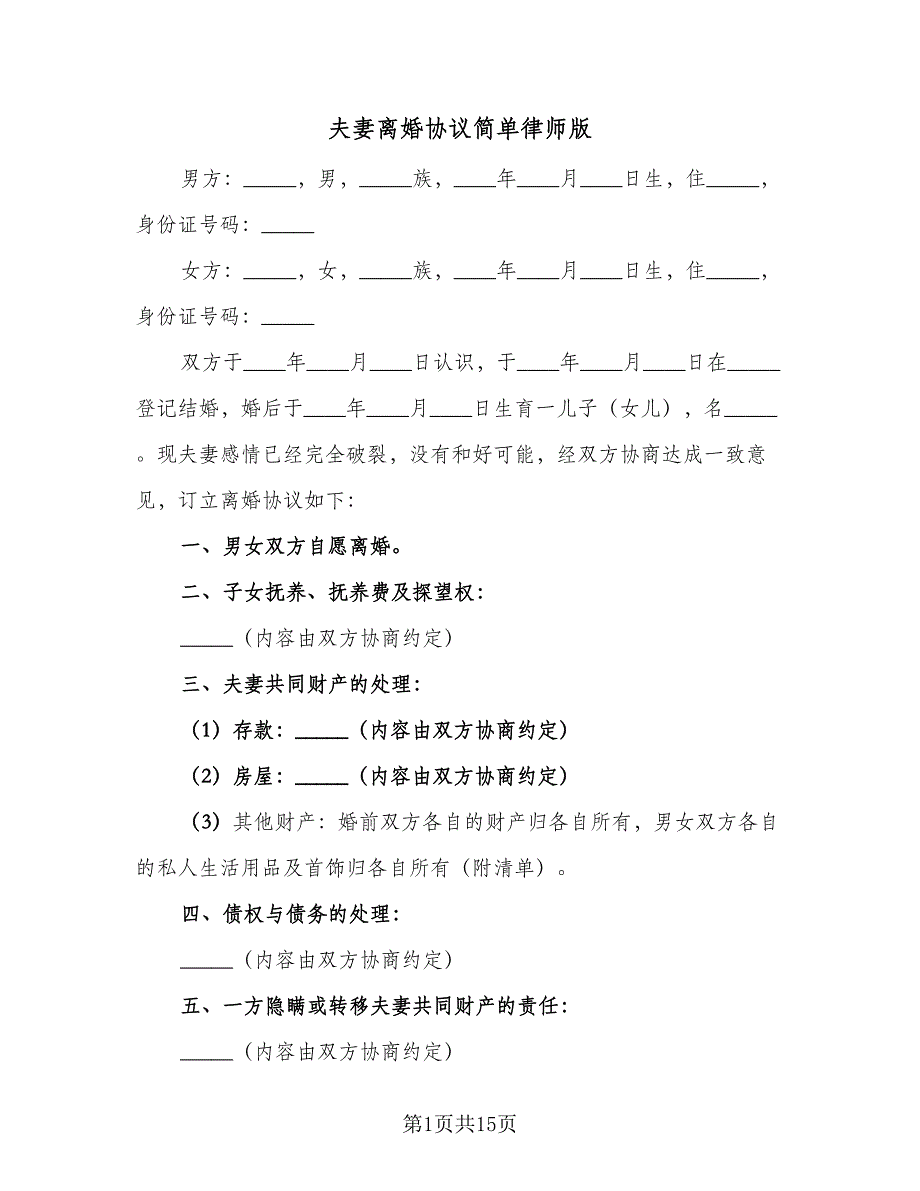 夫妻离婚协议简单律师版
男方：_____，男，_____族，____年____月____日生，住_____，
身份证号码：_____
女方：_____，女，_____族，____年____月____日生，住_____，
身份证号码：_____
双方于____年____月____日认识，于____年____月____日在_____
登记结婚，婚后于____年____月____日生育一儿子（女儿），名_____
。现夫妻感情已经完全破裂，没有和好可能，经双方协商达成一致意
见，订立离婚协议如下：
一、男女双方自愿离婚。
二、子女抚养、抚养费及探望权：
_____（内容由双方协商约定）
三、夫妻共同财产的处理：
（1）存款：_____（内容由双方协商约定）
（2）房屋：_____（内容由双方协商约定）
（3）其他财产：婚前双方各自的财产归各自所有，男女双方各自
的私人生活用品及首饰归各自所有（附清单）。
四、债权与债务的处理：
_____（内容由双方协商约定）
五、一方隐瞒或转移夫妻共同财产的责任：
_____（内容由双方协商约定）
第1页共15页